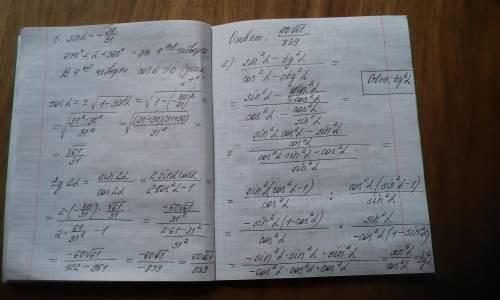 1. sinα = -30/31
270° < α < 360° = 
в 4 четверти cosα > 0
cosα = ±√(1-sin²α) = √(1-(30/31)²) =
= √((31²-30²)/31²) = √((31-30)(31+30)/31²) =
= √61/31
tg 2α = sin2α/cos2α = 2sinα cosα/(2cos²α-1) =
2·(-30/31)·√61/31 / (2·61/31² - 1) = (-60√61/31²) / ((2·61-31²)/31²) =
= -60√61/(122-961) = -60√61/-839 = 60√61/839
Ответ: 60√61/839
(sin²α - tg²α)/(cos²α - ctg²α) =
= (sin²α - sin²α/cos²α)/(cos²α - cos²α/sin²α) =
= ((sin²α cos²α - sin²α)/cos²α) / ((cos²α sin²α - cos²α)/sin²α) =
= sin²α(cos²α-1)/cos²α : cos²α(sin²α-1)/sin²α =
= -sin²α(1-cos²α)/cos²α · sin²α/-cos²α(1-sin²α) =
= -sin²α·sin²α·sin²α/-cos²α·cos²α·cos²α =
Ответ: